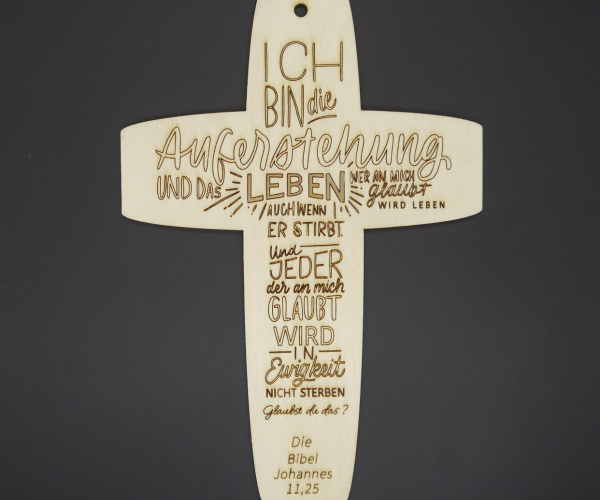 ICH
BIN die
Auferstehung
UND DAS LEBEN WER AN MICH
glaubt
WIRD LEBEN
AUCH WENN
ER STIRBT.
Und
JEDER
der an mich
GLAUBT
WIRD
IN
Ewigkeit
NICHT STERBEN
Glaubst du das?
Die
Bibel
Johannes
11,25